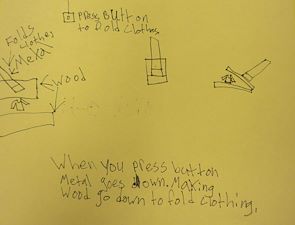 Press Button
to Fold Clothes
Folds
Clothes
Metal
Wood
When you press button
Metal goes down. Making
Wood go down to fold clothing.